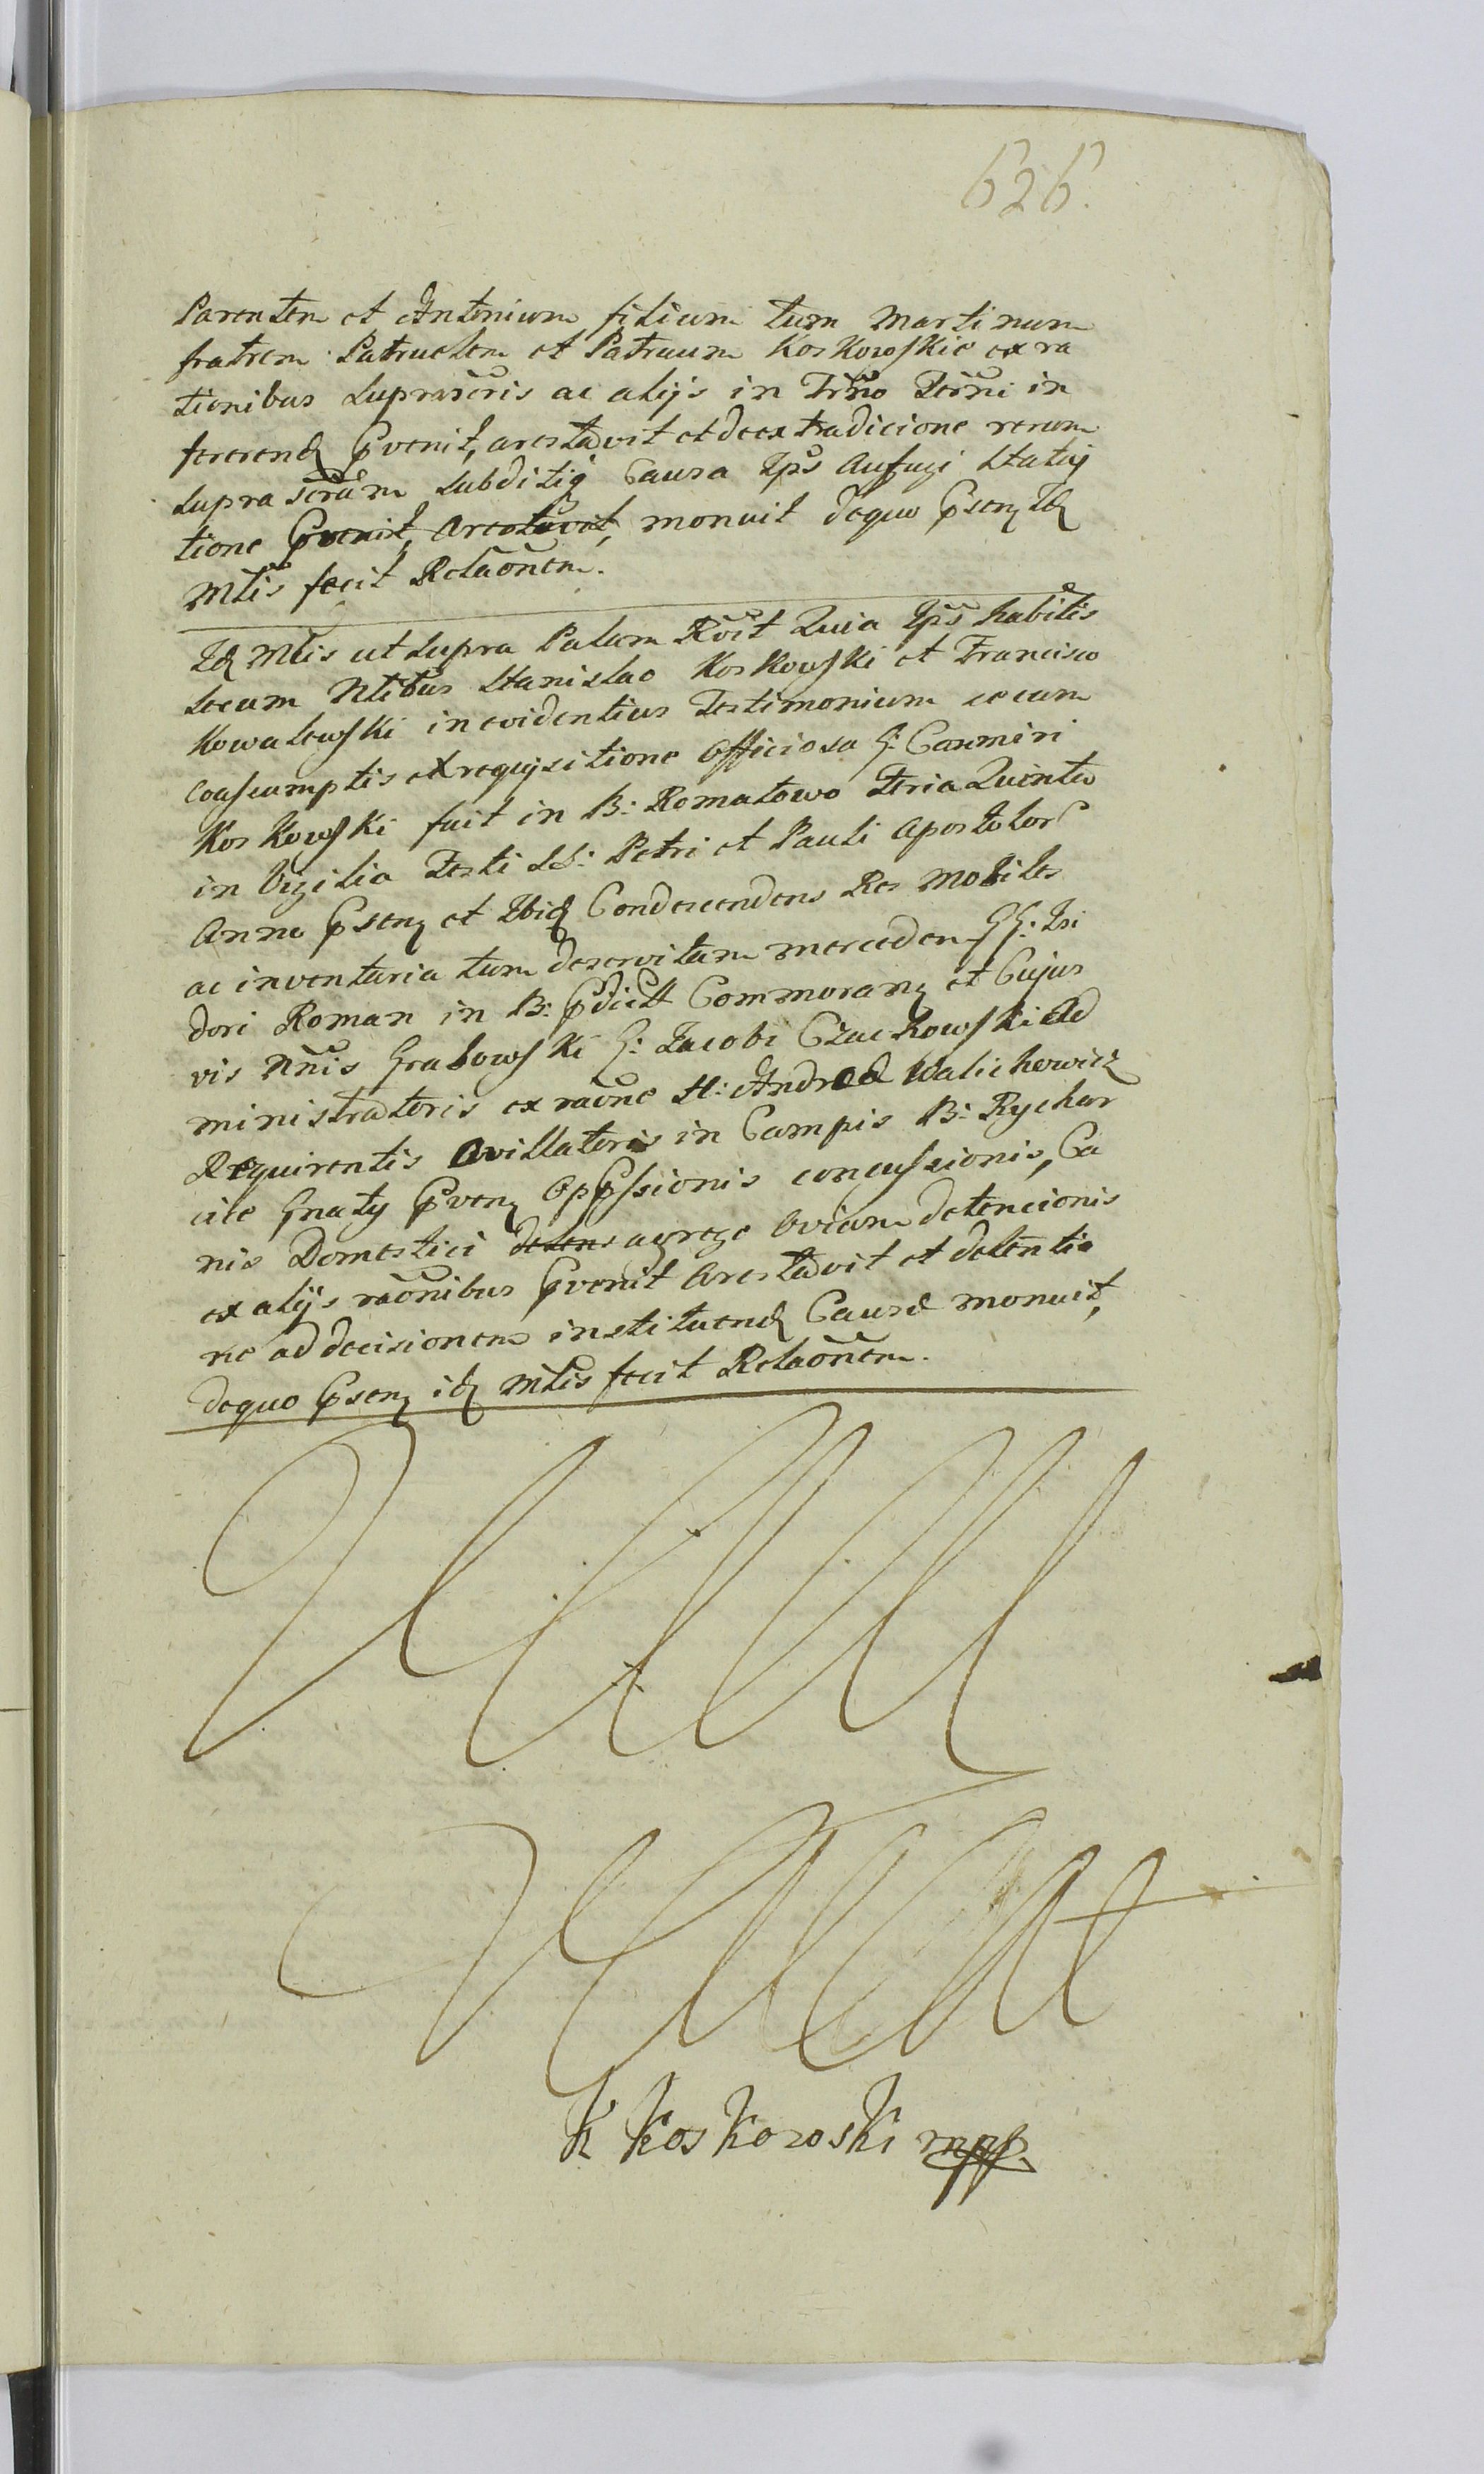 626.
Parentem et Antonium filium tum Martinum
fratrem Patruelem et Patruum Koskowskie ex ra
tionibus supraseris ac alijs in Trno Terni in
ferend pvenit, arestavit et de extradicione rerum
supra scram subditiq Causa Ips Aufugi Statui
tione pvenit, Arestavit, monuit dequo psen Id
Mlis fecit Relaonem.
Id Mlis ut supra Palam Rvit Quia Ips habitis
secum Ntibus Stanislao Koskowski et Francisco
Kowalewski in evidentius Testimonium secum
coassumptis ex requisitione officiosa G: Casimiri
Koskowski fuit in B: Romatowo Feria Quinta
in Vigilia Festi SS: Petri et Pauli Apostolor
Anno psen et Ibid Condescendens Res mobiles
ac inventaria tum deservitam mercedem GG: Isi
dori Roman in B: pdictt Commoran et Cujus
vis Nnis Grabowski G: Jacobi Czackowski Ad
ministratoris ex raone H: Andrea Walichowicz
Requirentis Ovillatoris in Campis B: Rychar
cice Gnaty pven Oppssionis concussionis, Ca
nis Domestici detens a grege Ovium detencionis
ex alijs raonibus pvenit Arestavit et detentio
ne ad decisionem instituend Causae monuit,
dequo psen id Mlis fecit Relaonem.
K Koskowski mpp.